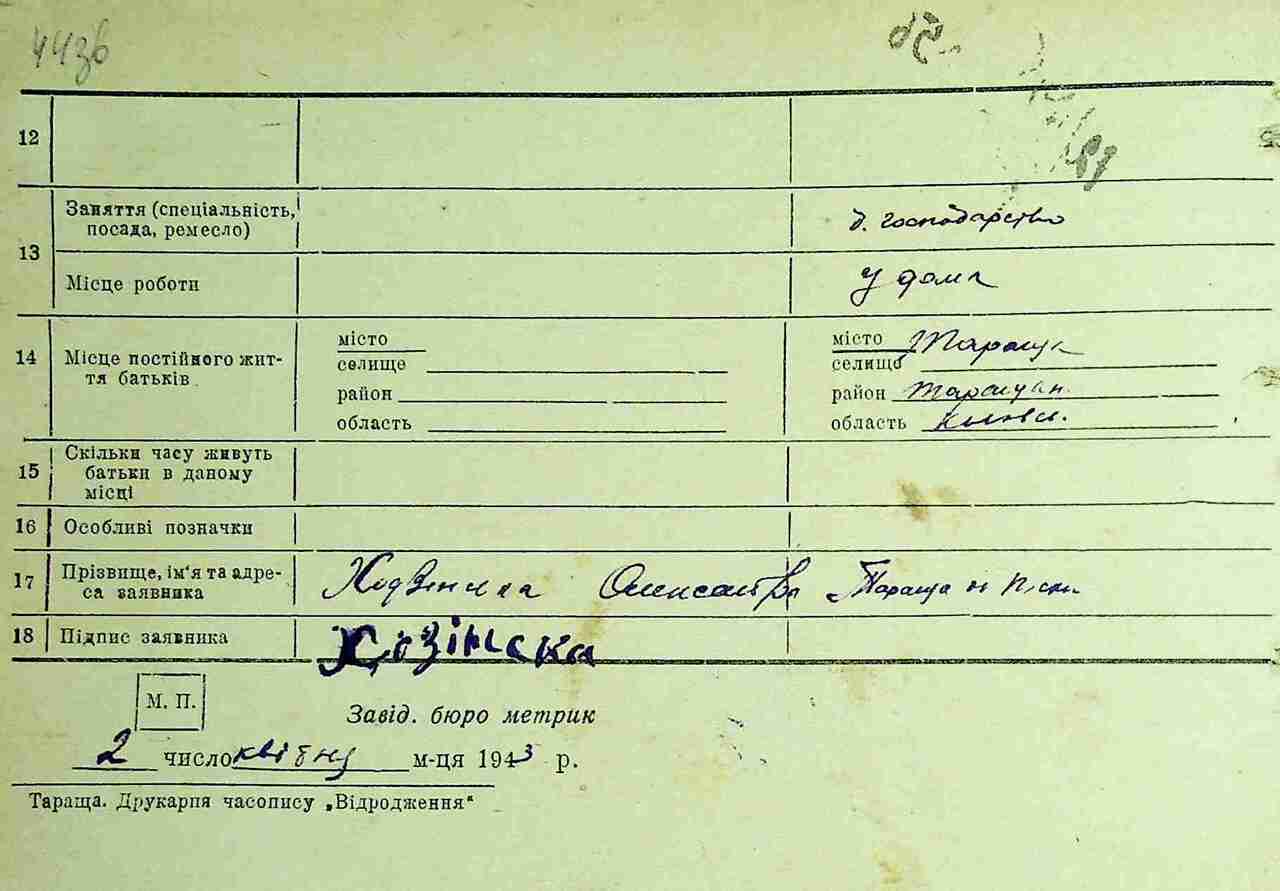 44зв
12
13 Заняття (спеціальність, посада, ремесло) д. господарство
Місце роботи у дома
14 Місце постійного життя батьків
місто
селище
район
область
місто Тараща
селище
район Таращан.
область Київськ.
15 Скільки часу живуть батьки в даному місці
16 Особливі позначки
17 Прізвище, ім'я та адреса заявника Ходзінська Олександра Тараща
18 Підпис заявника
М. П.
Завід. бюро метрик
2 число квітня м-ця 1943 р.
Тараща. Друкарня часопису „Відродження“